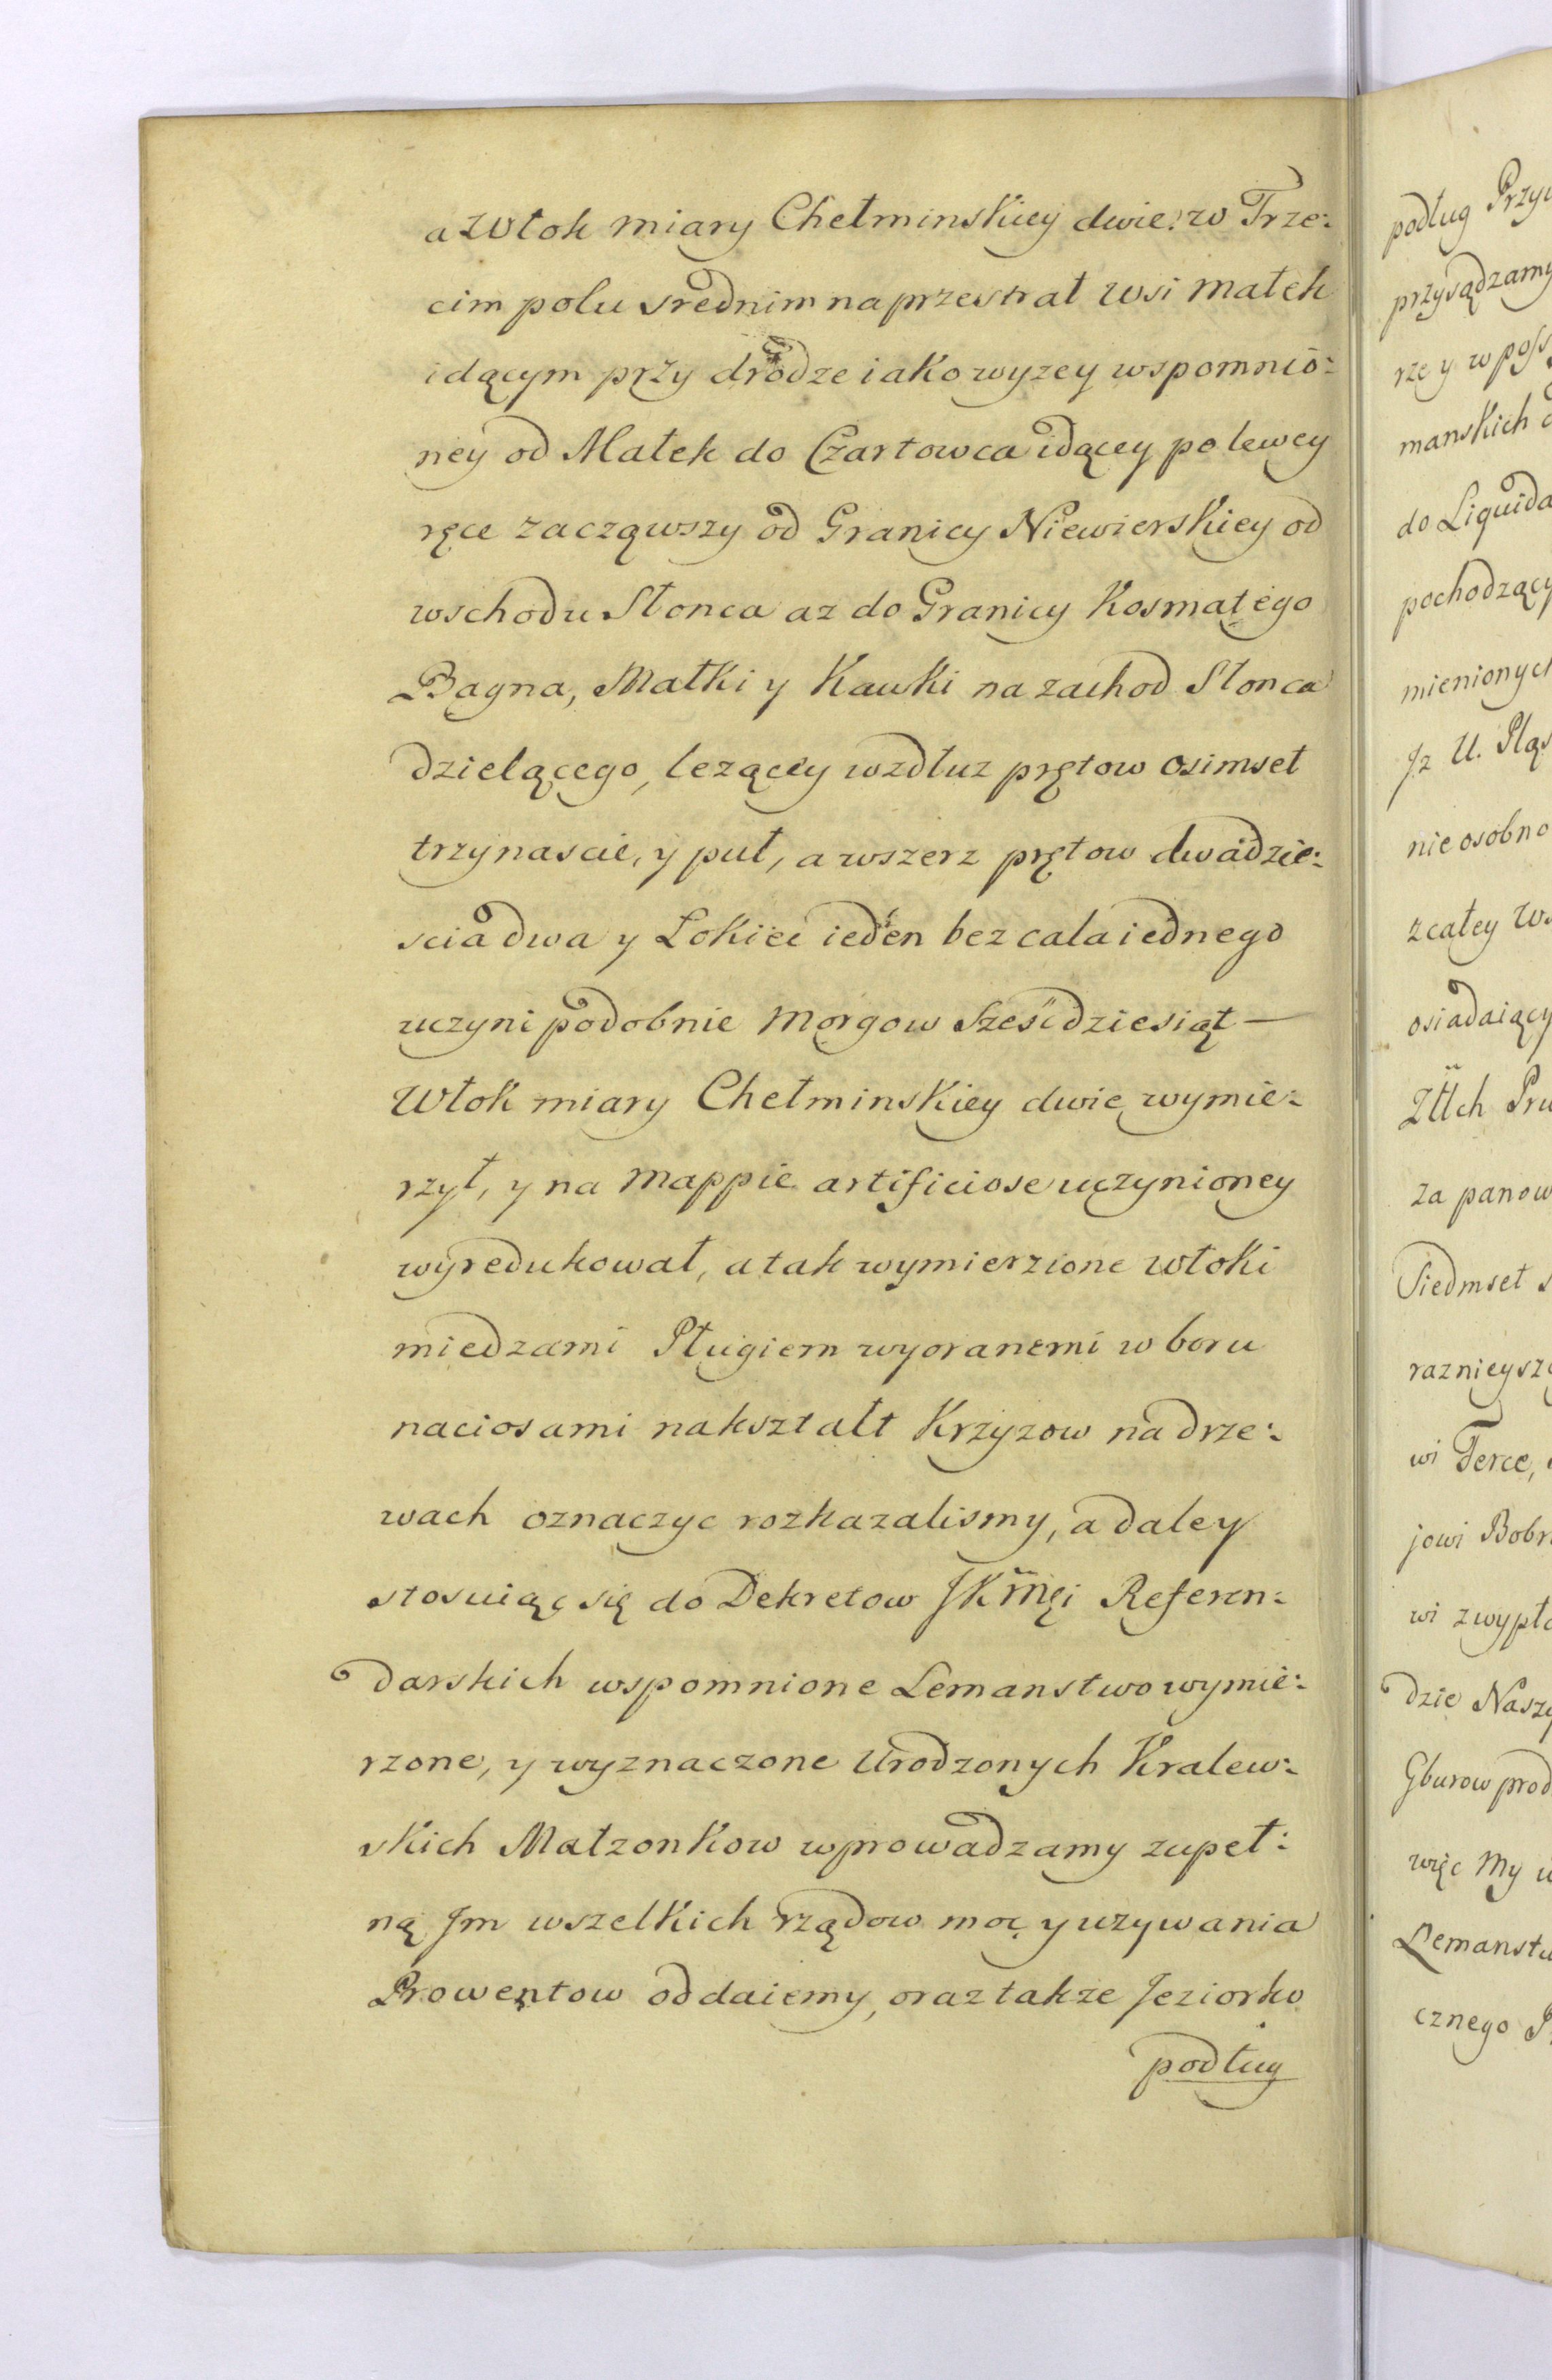 a Włok miary Chełminskiey dwie: w Trze:
cim polu srednim na przestrał wsi Małek
idącym przy drodze iako wyzey wspomnio:
ney od Małek do Czartowca idącey po lewey
ręce zacząwszy od Granicy Niewierskiey od
wschodu Słonca az do Granicy Kosmatego
Bagna, Małki y Kawki na zachod Słonca
dzielącego, lezącey wzdłuz prętow osimset
trzynascie, y puł, a wszerz prętow dwadzie:
scia dwa y Łokieć ieden bez cala iednego
uczyni podobnie Morgow Sześćdziesiąt —
Włok miary Chełminskiey dwie wymie:
rzył, y na Mappie artificiose uczynioney
wyredukował, a tak wymierzione włoki
miedzami Pługiem wyoranemi w boru
naciosami nakształt Krzyzow na drze:
wach oznaczyc rozkazalismy, a daley
stosuiąc się do Dekretow JKmçi Referen:
darskich wspomnione Lemanstwo wymie:
rzone, y wyznaczone Urodzonych Kralew:
skich Małzonkow wprowadzamy zupeł:
ną Jm wszelkich rządow moc y uzywania
Prowentow oddaiemy, oraz takze Jeziorko
podług
podług
przysądzamy
rze y w
manskich
do
pochodzący
mienionych
Jz U.
nie osobno
z całey
osiadaiący
za
Siedmset
wi Ferce,
jowi
wi
dzie
Gburow
więc My
cznego